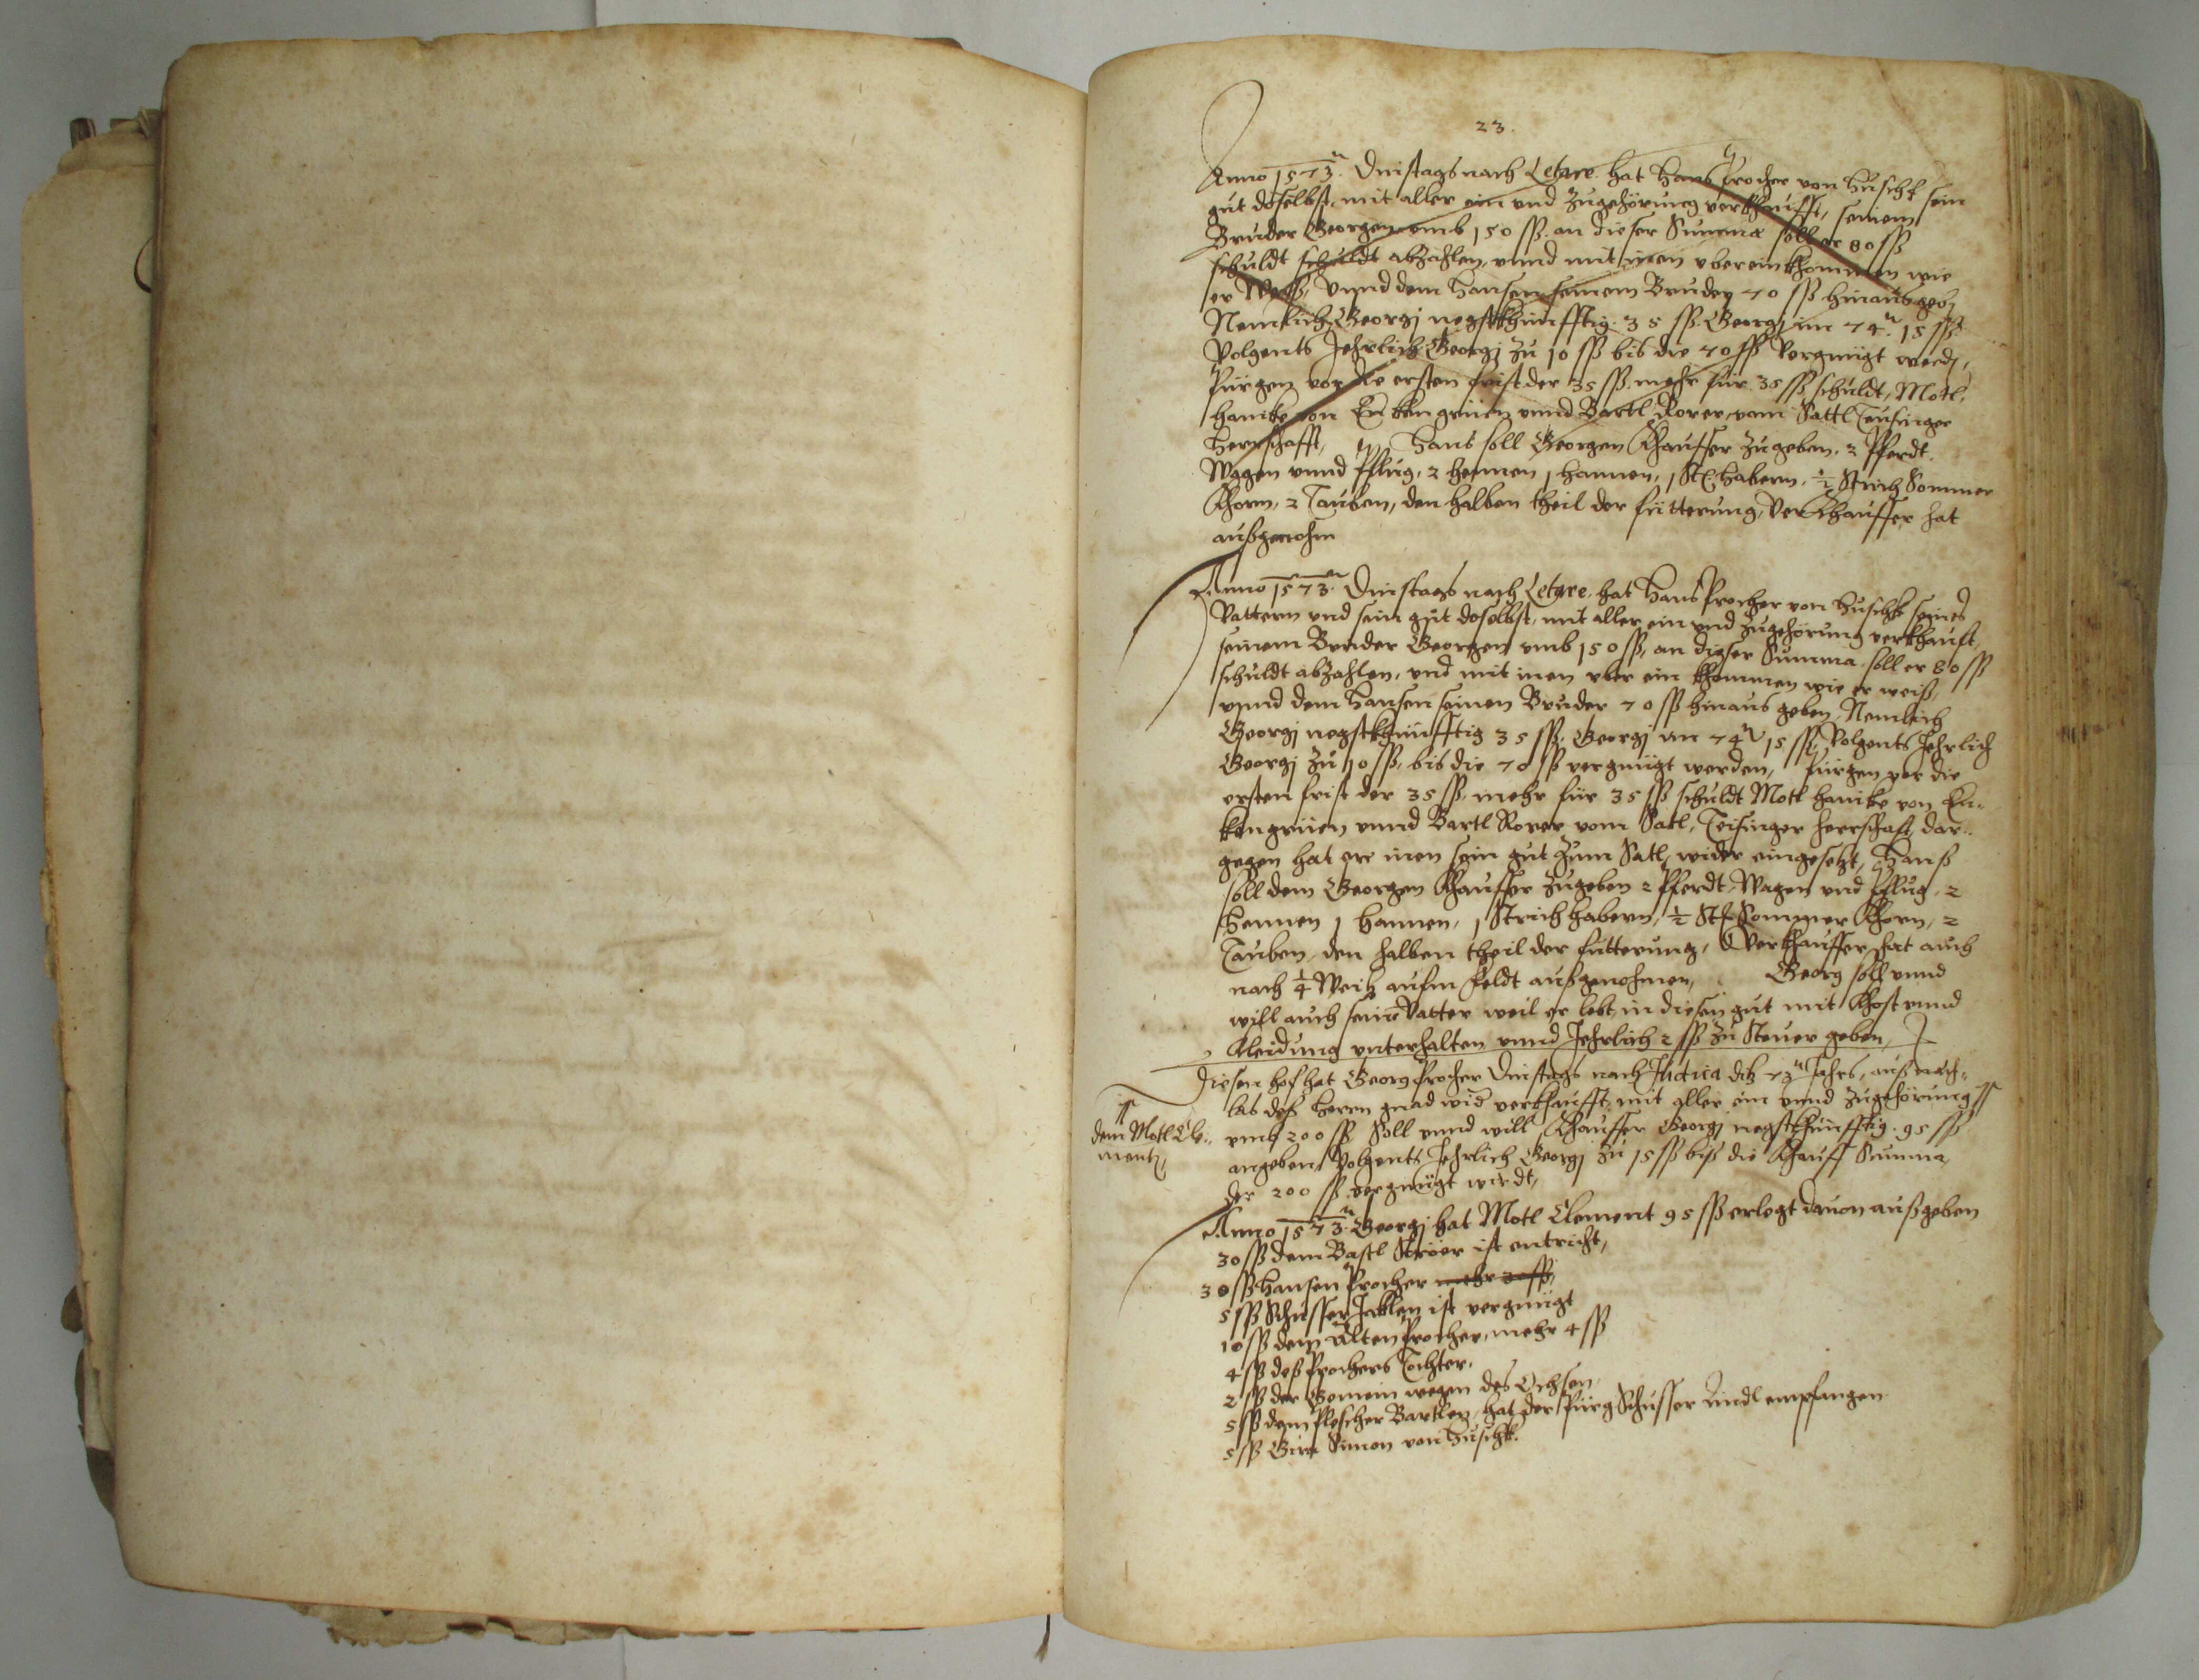 23.
Anno 1573. Dinstags nach Letare hat Hans Procher von Huschk sein
gut doselbst, mit aller ein und Zugehörung verkhaufft, seinem
Bruder Georgen umb 150 ß. an dieser Summa soll er 80 ß
schuldt schuldt abzahlen, unnd mit inen ubereinkhommen wie
er weiß, Unnd dem Hansen seinem Bruder 70 ß hinausgeben
Nemlich Georgj negstkhünfftig 35 ß. Georgj im 74. 15 ß
Volgents Jehrlich Georgj zu 10 ß bis die 70 ß Vergnügt werden,
Pürgen vor die ersten frist der 35 ß. mehr für 35 ß schuldt, Motl
hanike von Enkengrüen unnd Bartl Rorer vom Sattl Teusinger
Herrschafft, Hans soll Georgen Khauffer zugeben, 2 Pferdt
Wagen unnd Pflug, 2 hennen 1 hannen, 1 Str. habern, ½ Strich Sommer
Khorn, 2 Tauben, den halben theil der fütterung, Verkhauffer hat
außgenohm
Anno 1573. Dinstags nach Letare hat Hans Procher von Huschk seines
Vattern und sein gut doselbst, mit aller ein und Zugehörung verkhauft,
seinem Bruder Georgen umb 150 ß, an dieser Summa soll er 80 ß
schuldt abzahlen, und mit inen uber ein khommen wie er weiß,
unnd dem Hansen seinen Bruder 70 ß hinaus geben, Nemlich
Georgj negstkhünfftig 35 ß. Georgj im 74 15 ß, Volgents Jehrlich
Georgj zu 10 ß, bis die 70 ß vergnügt werden, Pürgen vor die
ersten frist der 35 ß, mehr für 35 ß schuldt Motl hanike von En-
kengrüen unnd Bartl Rorer vom Satl, Teisinger herrschaft, dar-
gegen hat er inen sein gut zum Satl, wider eingesetzt, Hanß
soll dem Georgen Khauffer zugeben 2 Pferdt, Wagen und Pflug, 2
Hennen 1 Hannen, 1 Strich habern, ½ Str. Sommer Khorn, 2
Tauben, den halben theil der fütterung, Verkhauffer hat auch
noch ¼ Weitz aufm Feldt außgenohmen, Georg soll unnd
will auch seine Vatter weil er lebt, in diesen gut mit Khost unnd
Kleidung unterhalten unnd Jehrlich 2 ß zu Steuer geben,
Diesen hof hat Georg Procher Dinstags nach Judica ditz 73 Jahrs, auß nach-
las des Herrn gnad wid verkhaufft, mit aller ein unnd Zugehörung
dem Motl Cle-
ment,
umb 200 ß Soll unnd will Khauffer Georgj negstkhünfftig 95 ß
angeben, Volgents Jehrlich Georgj zu 15 ß biß die Khauff Summa,
der 200 ß vergnügt wirdt,
Anno 1573 Georgj hat Motl Clement 95 ß erlegt davon außgeben
30 ß dem Bastl ist entricht,
30 ß Hansen Procher mehr 30 ß
5 ß Schusser Jaklen ist vergnügt
10 ß dem Alten Procher, mehr 4 ß
4 ß deß Prochers Tochter,
2 ß der Gemein wegen des Ochsen,
5 ß dem Plescher Bartlen, hat der Pürg Schusser empfangen
5 ß Simon von Huschk.